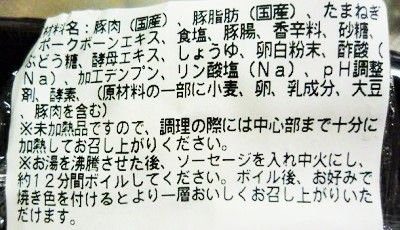 材料名：豚肉（国産）、豚脂肪（国産）、たまねぎ
ポークボーンエキス、食塩、豚腸、香辛料、砂糖、
ぶどう糖、酵母エキス、しょうゆ、卵白粉末、酢酸
（Na）、加工デンプン、リン酸塩（Na）、pH調整
剤、酵素、（原材料の一部に小麦、卵、乳成分、大豆
、豚肉を含む）
※未加熱品ですので、調理の際には中心部まで十分に
加熱してお召し上がりください。
※お湯を沸騰させた後、ソーセージを入れ中火にし、
約12分間ボイルしてください。ボイル後、お好みで
焼き色を付けるとより一層おいしくお召し上がりいた
だけます。